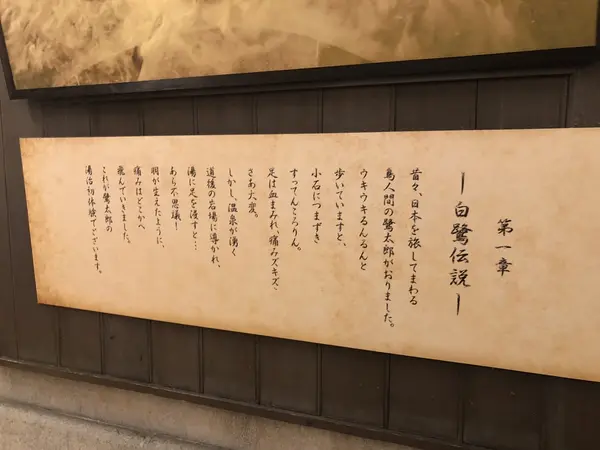 第一章
ー白鷺伝説ー
昔々、日本を旅してまわる
鳥人間の鷺太郎がおりました。
ウキウキるんるんと
歩いていますと、
小石につまずき
すってんころりん。
足は血まみれ、痛みズキズキ
さあ大変。
しかし、温泉が湧く
道後の岩場に導かれ、
湯に足を浸すと…
あら不思議！
羽が生えたように、
痛みはどこかへ
飛んでいきました。
これが鷺太郎の
湯治初体験でございます。